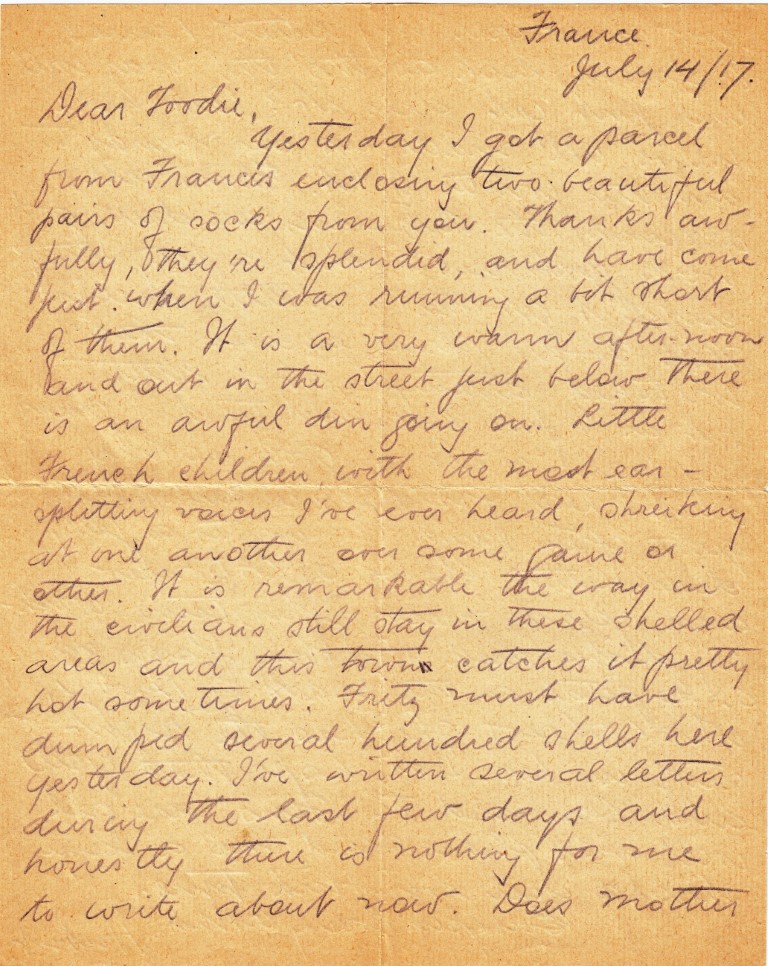 France
July 14/17.
Dear Foodie,
Yesterday I got a parcel
from Francis enclosing two beautiful
pairs of socks from you. Thanks aw-
fully, they're splendid, and have come
just when I was running a bit short
of them. It is a very warm after-noon
and out in the street just below there
is an awful din going on. Little
French children, with the most ear-
splitting voices I've ever heard, shreiking
at one another over some game or
other. It is remarkable the way in
the civilians still stay in these shelled
areas and this town catches it pretty
hot sometimes. Fritz must have
dumped several hundred shells here
yesterday. I've written several letters
during the last few days and
honestly there is nothing for me
to write about now. Does Mother